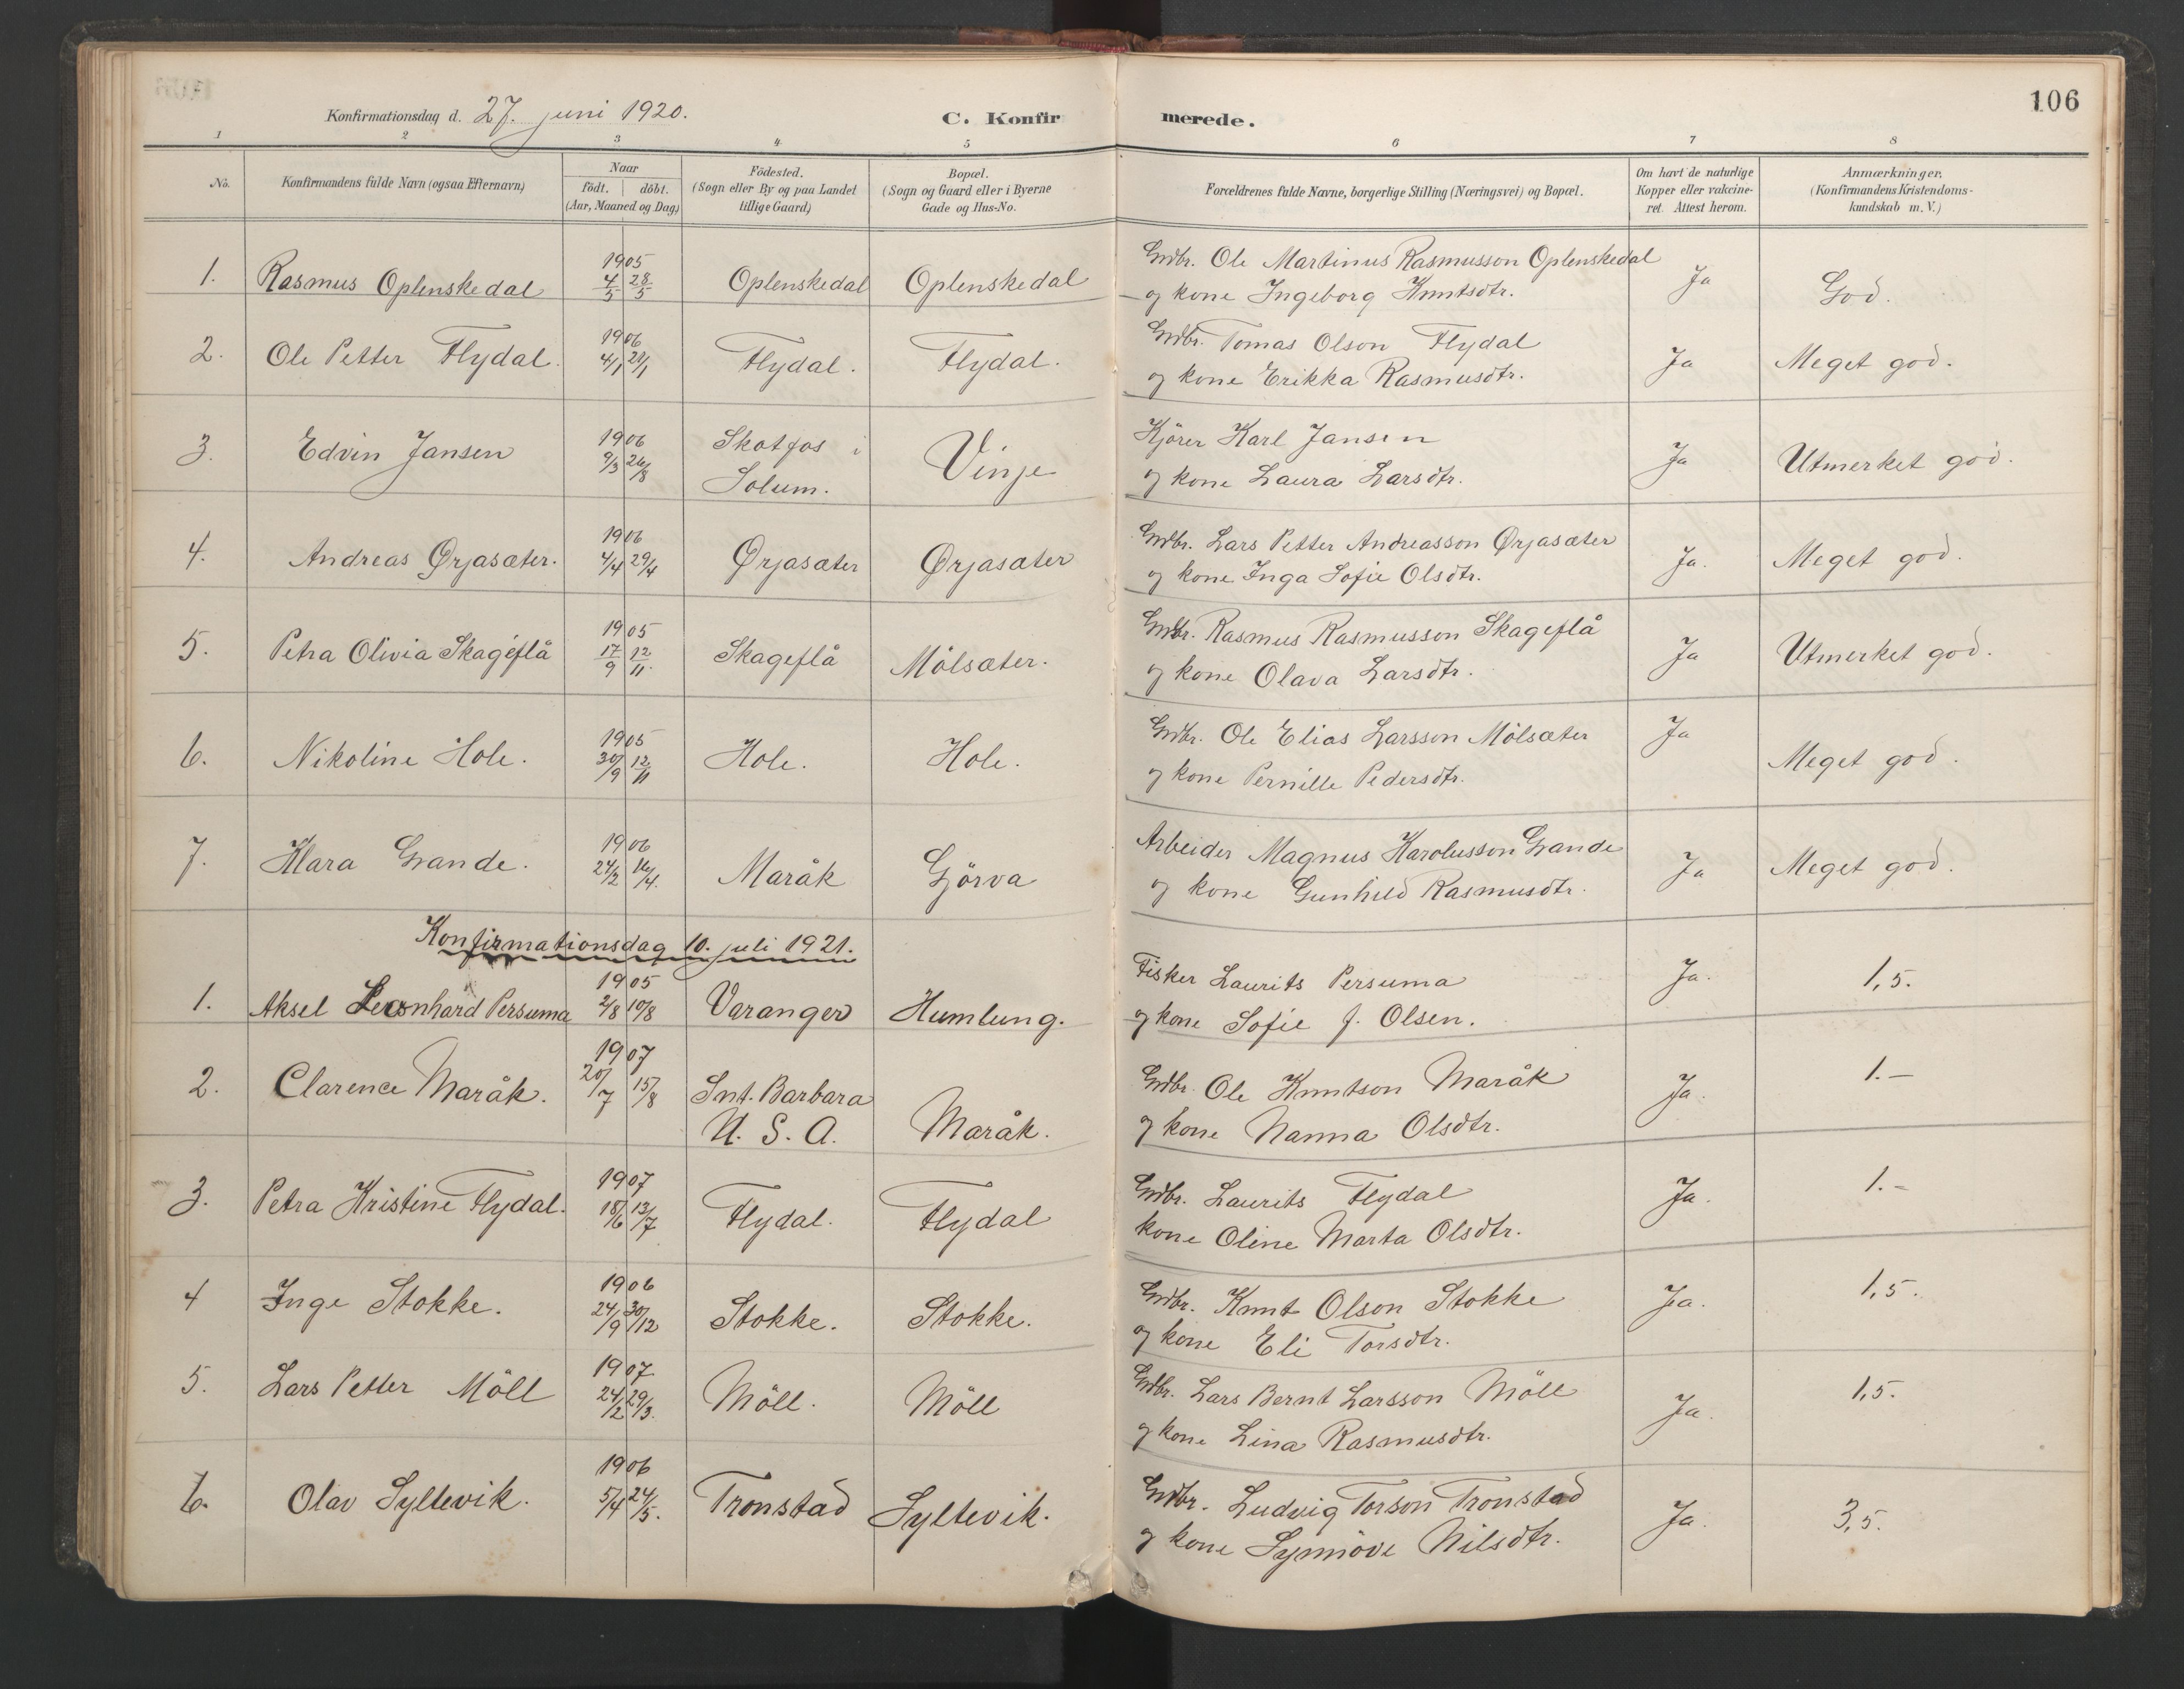 106
Konfirmationsdag d. 27. juni 1920. C. Konfir merede.
1 2 3 4 5 6 7 8
No. Konfirmandens fulde Navn (ogsaa Efternavn) Naar födt. döbt. (Aar, Maaned og Dag) Födested. (Sogn eller By og paa Landet tillige Gaard) Bopæl. (Sogn og Gaard eller i Byerne Gade og Hus-No. Forældrenes fulde Navne, borgerlige Stilling (Næringsvei) og Bopæl. Om havt de naturlige Kopper eller vakcineret. Attest herom. Anmærkninger. (Konfirmandens Kristendomskundskab m. V.)
1. Rasmus Oplenskedal 1905 4/5 28/5 Oplenskedal Oplenskedal Grdbr. Ole Martinus Rasmusson Oplenskedal Ja God.
og kone Ingeborg Knutsdtr.
2. Ole Petter Flydal. 1906 4/1 21/1 Flydal. Flydal. Grdbr. Tomas Olson Flydal Ja Meget god.
og kone Erikka Rasmusdtr.
3. Edvin Jansen 1906 9/3 26/8 Skotfos i Solum. Vinje Kjörer Karl Jansen Ja Utmerket god.
og kone Laura Larsdtr.
4. Andreas Ørjasæter. 1906 4/4 29/4 Ørjasæter Ørjasæter Grdbr. Lars Petter Andreasson Ørjasæter Ja. Meget god.
og kone Inga Sofie Olsdtr.
5. Petra Olivia Skageflå 1905 17/9 12/11. Skageflå Mölsæter. Grdbr. Rasmus Rasmusson Skageflå Ja Utmerket god.
og kone Olava Larsdtr.
6. Nikoline Hole. 1905 30/9 12/11 Hole. Hole. Grdbr. Ole Elias Larsson Mölsæter Ja Meget god.
og kone Pernille Pedersdtr.
7. Klara Grande. 1906 24/2 16/4. Maråk Gjörva Arbeider Magnus Karolusson Grande Ja Meget god.
og kone Gunhild Rasmusdtr.
Konfirmationsdag 10. juli 1921.
1. Aksel Leonhard Persuma 1905 2/8 10/8 Varanger Humlung. Fisker Laurits Persuma Ja. 1,5.
og kone Sofie J. Olsen.
2. Clarence Maråk. 1907 20/7 15/8 Snt. Barbara U. S. A. Maråk. Grdbr. Ole Knutson Maråk Ja. 1.-
og kone Nanna Olsdtr.
3. Petra Kristine Flydal. 1907 18/6 13/7 Flydal. Flydal Grdbr. Laurits Flydal Ja. 1.-
kone Oline Marta Olsdtr.
4 Inge Stokke. 1906 24/9 30/12 Stokke. Stokke. Grdbr. Knut Olson Stokke Ja. 1,5.
og kone Eli Torsdtr.
5. Lars Petter Möll 1907 24/2 29/3. Möll. Möll Grdbr. Lars Bernt Larsson Möll Ja. 1,5.
og kone Lina Rasmusdtr.
6. Olav Syltevik. 1906 5/4 24/5. Tronstad Syltevik. Grdbr. Ludvig Torson Tronstad Ja. 3,5.
og kone Synnöve Nilsdtr.